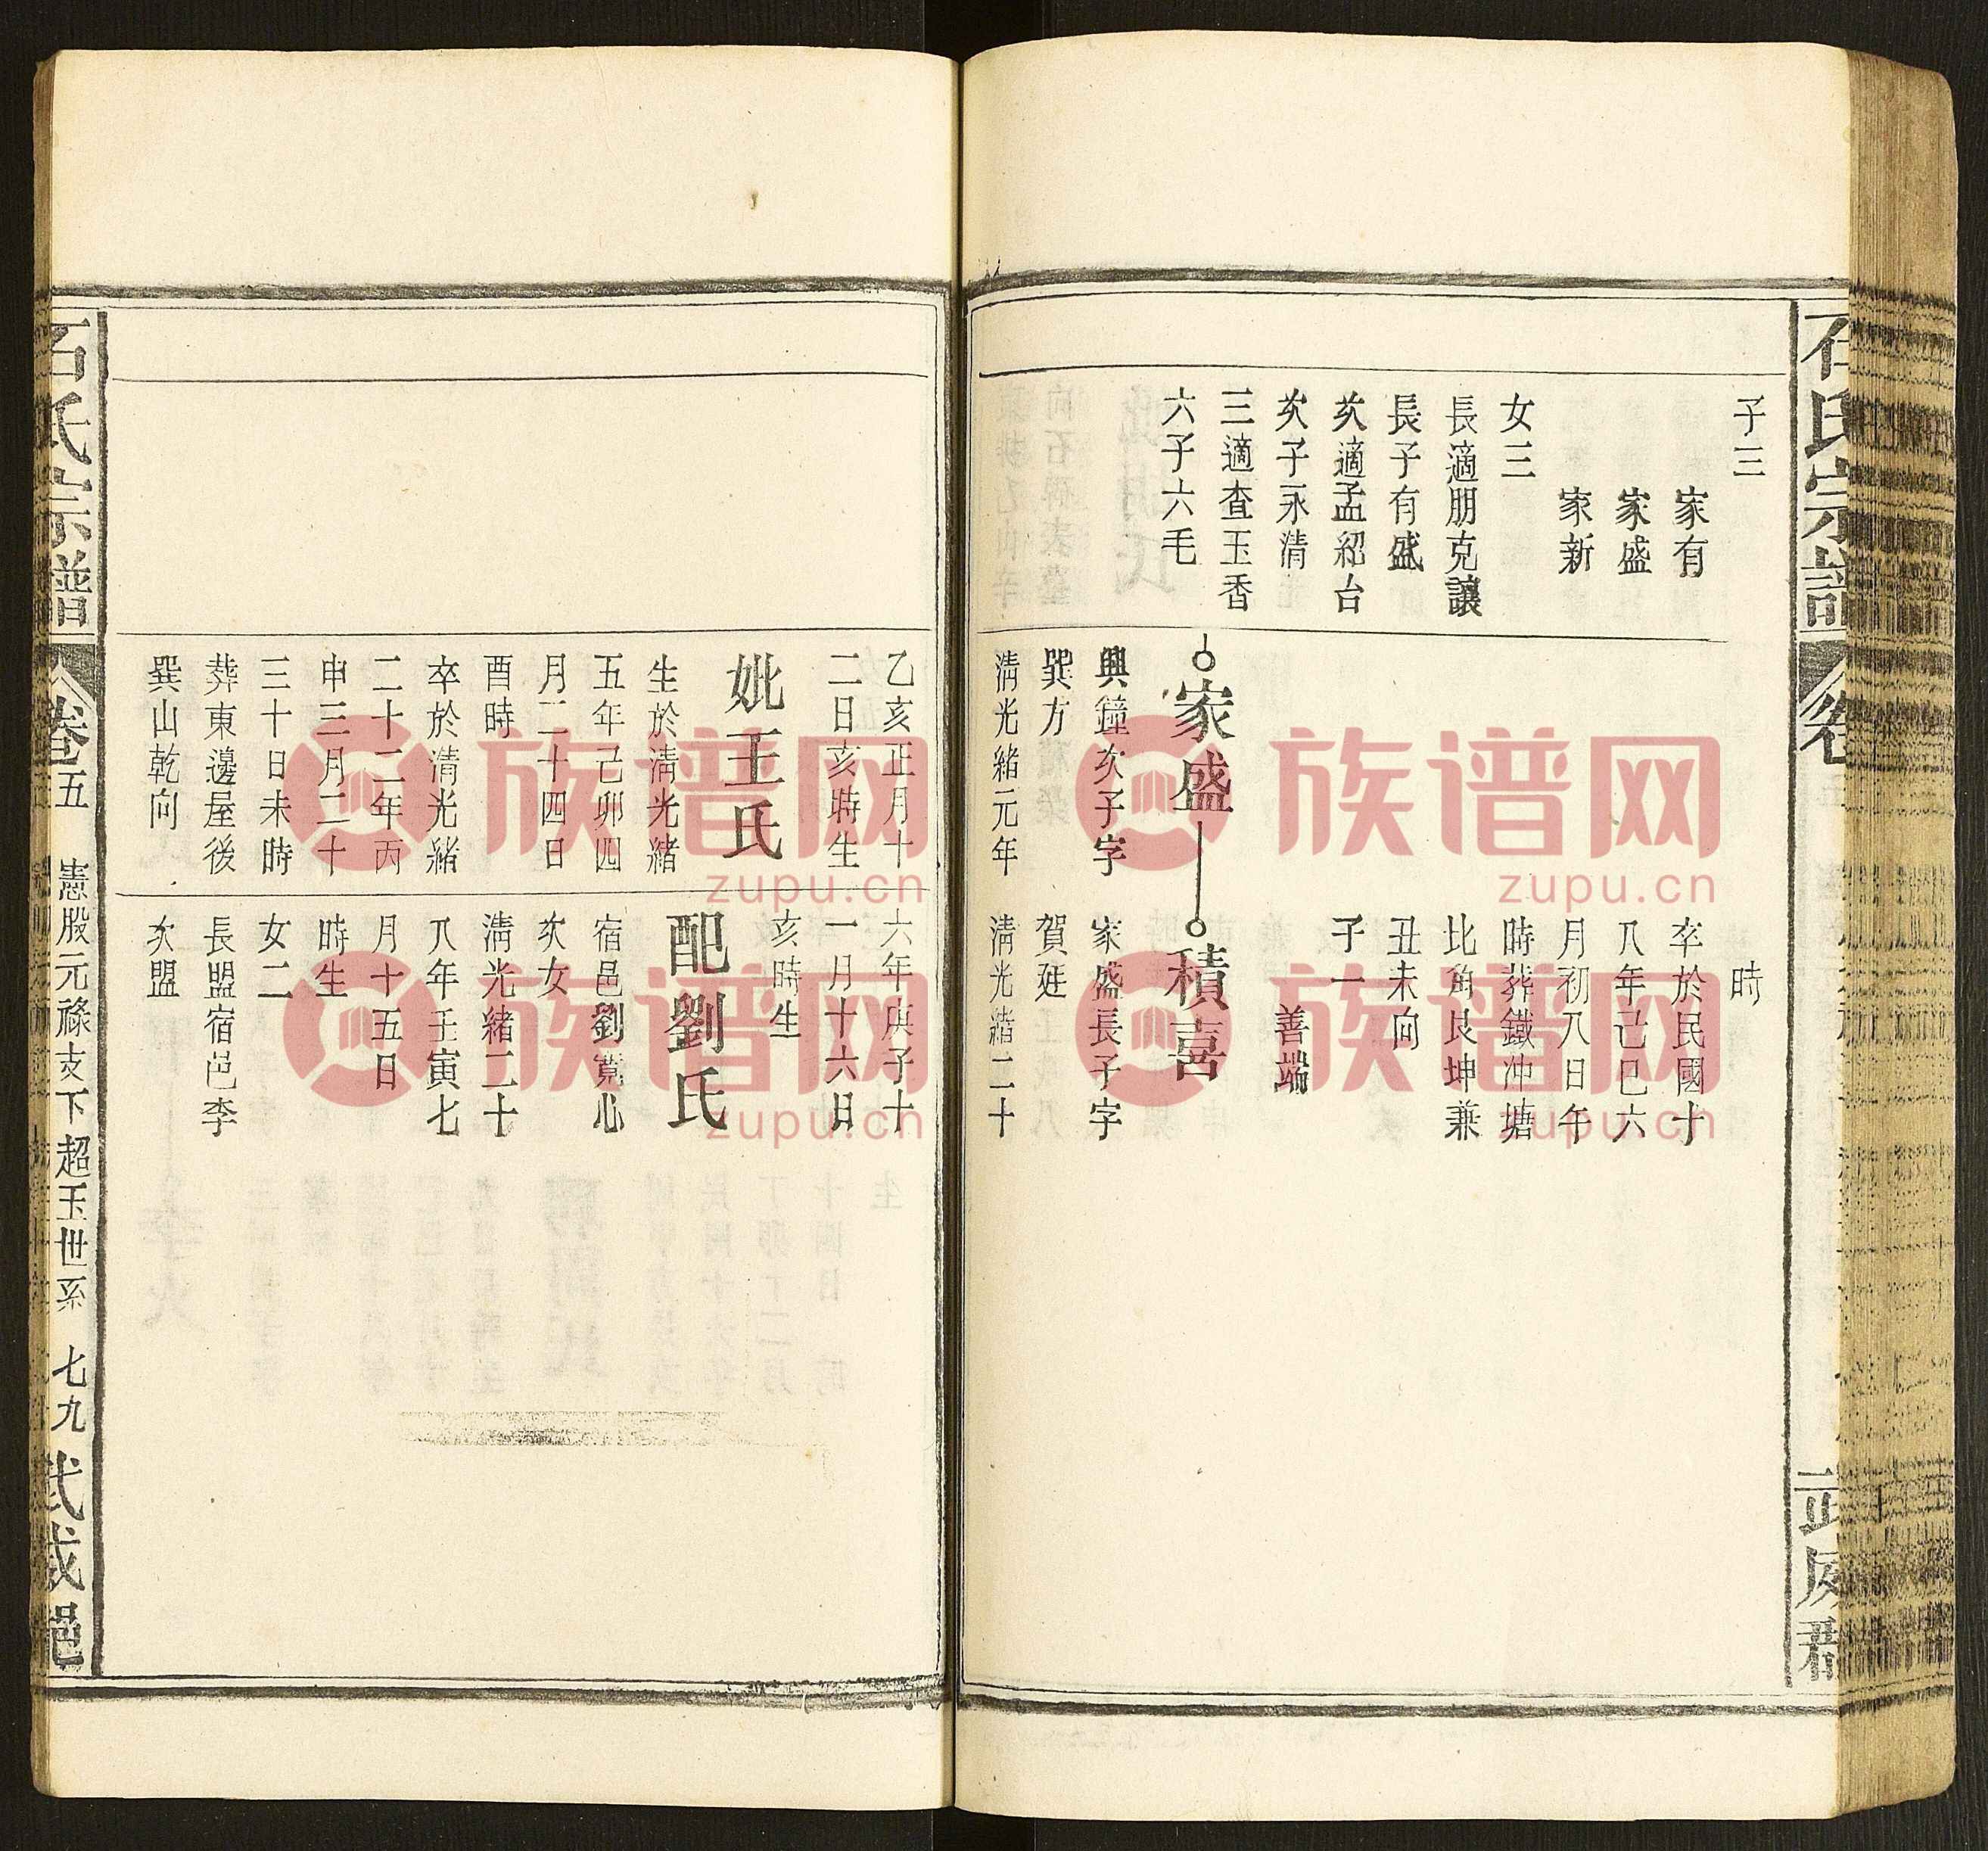 石氏宗譜
卷
子三
家有
家盛
家新
女三
長適朋克讓
長子有盛
次適孟紹台
次子永清
三適查玉香
六子六毛
家盛
興鐘次子字
巽方
清光緒元年
時
卒於民國十
八年己巳六
月初八日午
時葬鐵冲塘
比角艮坤兼
丑未向
子一
善端
積喜
家盛長子字
賀廷
清光緒二十
乙亥正月十
二日亥時生
妣王氏
生於清光緒
五年己卯四
月二十四日
酉時
卒於清光緒
二十二年丙
申三月二十
三十日未時
葬東邊屋後
巽山乾向
六年庚子十
一月十六日
亥時生
配劉氏
宿邑劉寬心
次女
清光緒二十
八年壬寅七
月十五日
時生
女二
長盟宿邑李
次盟
石氏宗譜
卷五
憲股元祿支下超玉世系
七九
武威
族谱网
zupu.cn
族谱网
zupu.cn
族谱网
zupu.cn
族谱网
zupu.cn